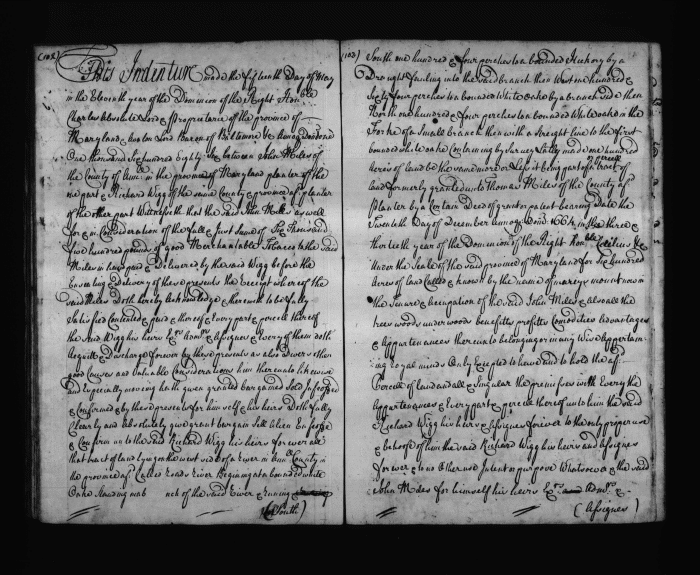 (102)
This Indenture made the fifteenth Day of May
in the Eleventh year of the Dominion of the Right Honble
Charles Absolute Lord & Proprietarie of the province of
Maryland & Avalon Lord Baron of Baltimore &c Annoq Dom one
One thousand Six hundred Eighty between John Miles of
the County of in the province of Maryland planter of the
one part & Richard Wigg of the same County & province afd planter
of the other part Wittnesseth that the said John Miles as well
for & in Consideration of the full & just Sume of Six Thousand
five hundred pounds of good Merchantable Tobacco to the said
Miles in hand paid & Delivered by the said Wigg before the
Ensealing & delivery of these presents the Receipt whereof the
said Miles doth hereby acknowledge & therewith to be fully
Satisfied Contented & paid & thereof & Every part & parcell thereof
the said Wigg his heirs Exrs Admrs & Assignes & Every of them doth
Acquitt & Discharge forever by these presents as also divers other
good Causes and Valuable Considerations him thereunto likewise
and Especially moving hath given granted bargained Sold Infeoffed
& Confirmed & by these presents for himself & his heirs Doth fully
Clearly and Absolutely give grant bargain Sell Alien Enfeoffe
& Confirm unto the said Richard Wigg his heirs for ever all
that tract of land lying on the west side of a River in County in
the province afd Called Roads River Beginning at a bounded white
Oake standing nch of the said River & running
(South)
(103)
South one hundred & four perches to a bounded Hickory by a
Drought faulling into the said branch then West one hundred &
Sixty four perches to a bounded White oake by a branch side then
North one hundred & four perches to a bounded White oake in the
forke of a Small branch then with a Streight line to the first
bounded white oake Containing by Survey Lately made one hundred
Acres of land be the same more or Less it being part of a tract or Parcell of
land formerly granted unto Thomas Miles of the County afd
planter by a Certain Deed of grand or patent bearing Date the
Seventeenth Day of December annoq Domi 1664 in the three &
thirtieth year of the Dominion of the Right Honble Cecilius &c
Under the Seale of the said province of Maryland for Six hundred
Acres of land Called & known by the name of mount now in
the Tenure & occupation of the said John Miles & also all the
trees woods underwoods benefitts profitts Comodities advantages
& Appurtenances thereunto belonging or in any Wise Appertain-
ing Royal mines Only Excepted to have and to hold the afd
Parcell of land and all & Singular the premisses with Every the
Appurtenances & Every part & parcell thereof unto him the said
Richard Wigg his heirs & Assignes forever to the only proper use
& behoofe of him the said Richard Wigg his heirs and assignes
for ever & to no other use Intent or purpose Whatsoever & the said
John Miles for himself his heirs Exrs Admrs &
(Assignes)